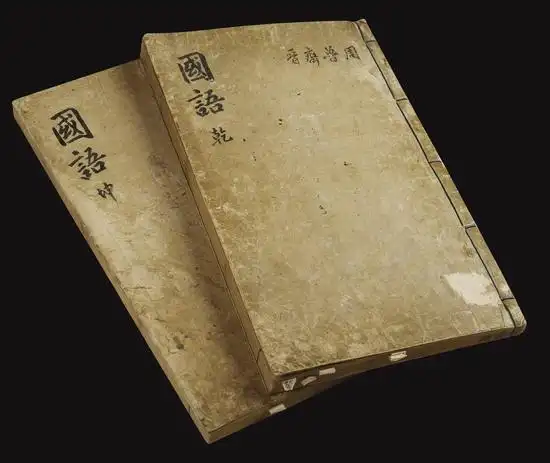 周魯齊晉
國語乾
國語坤